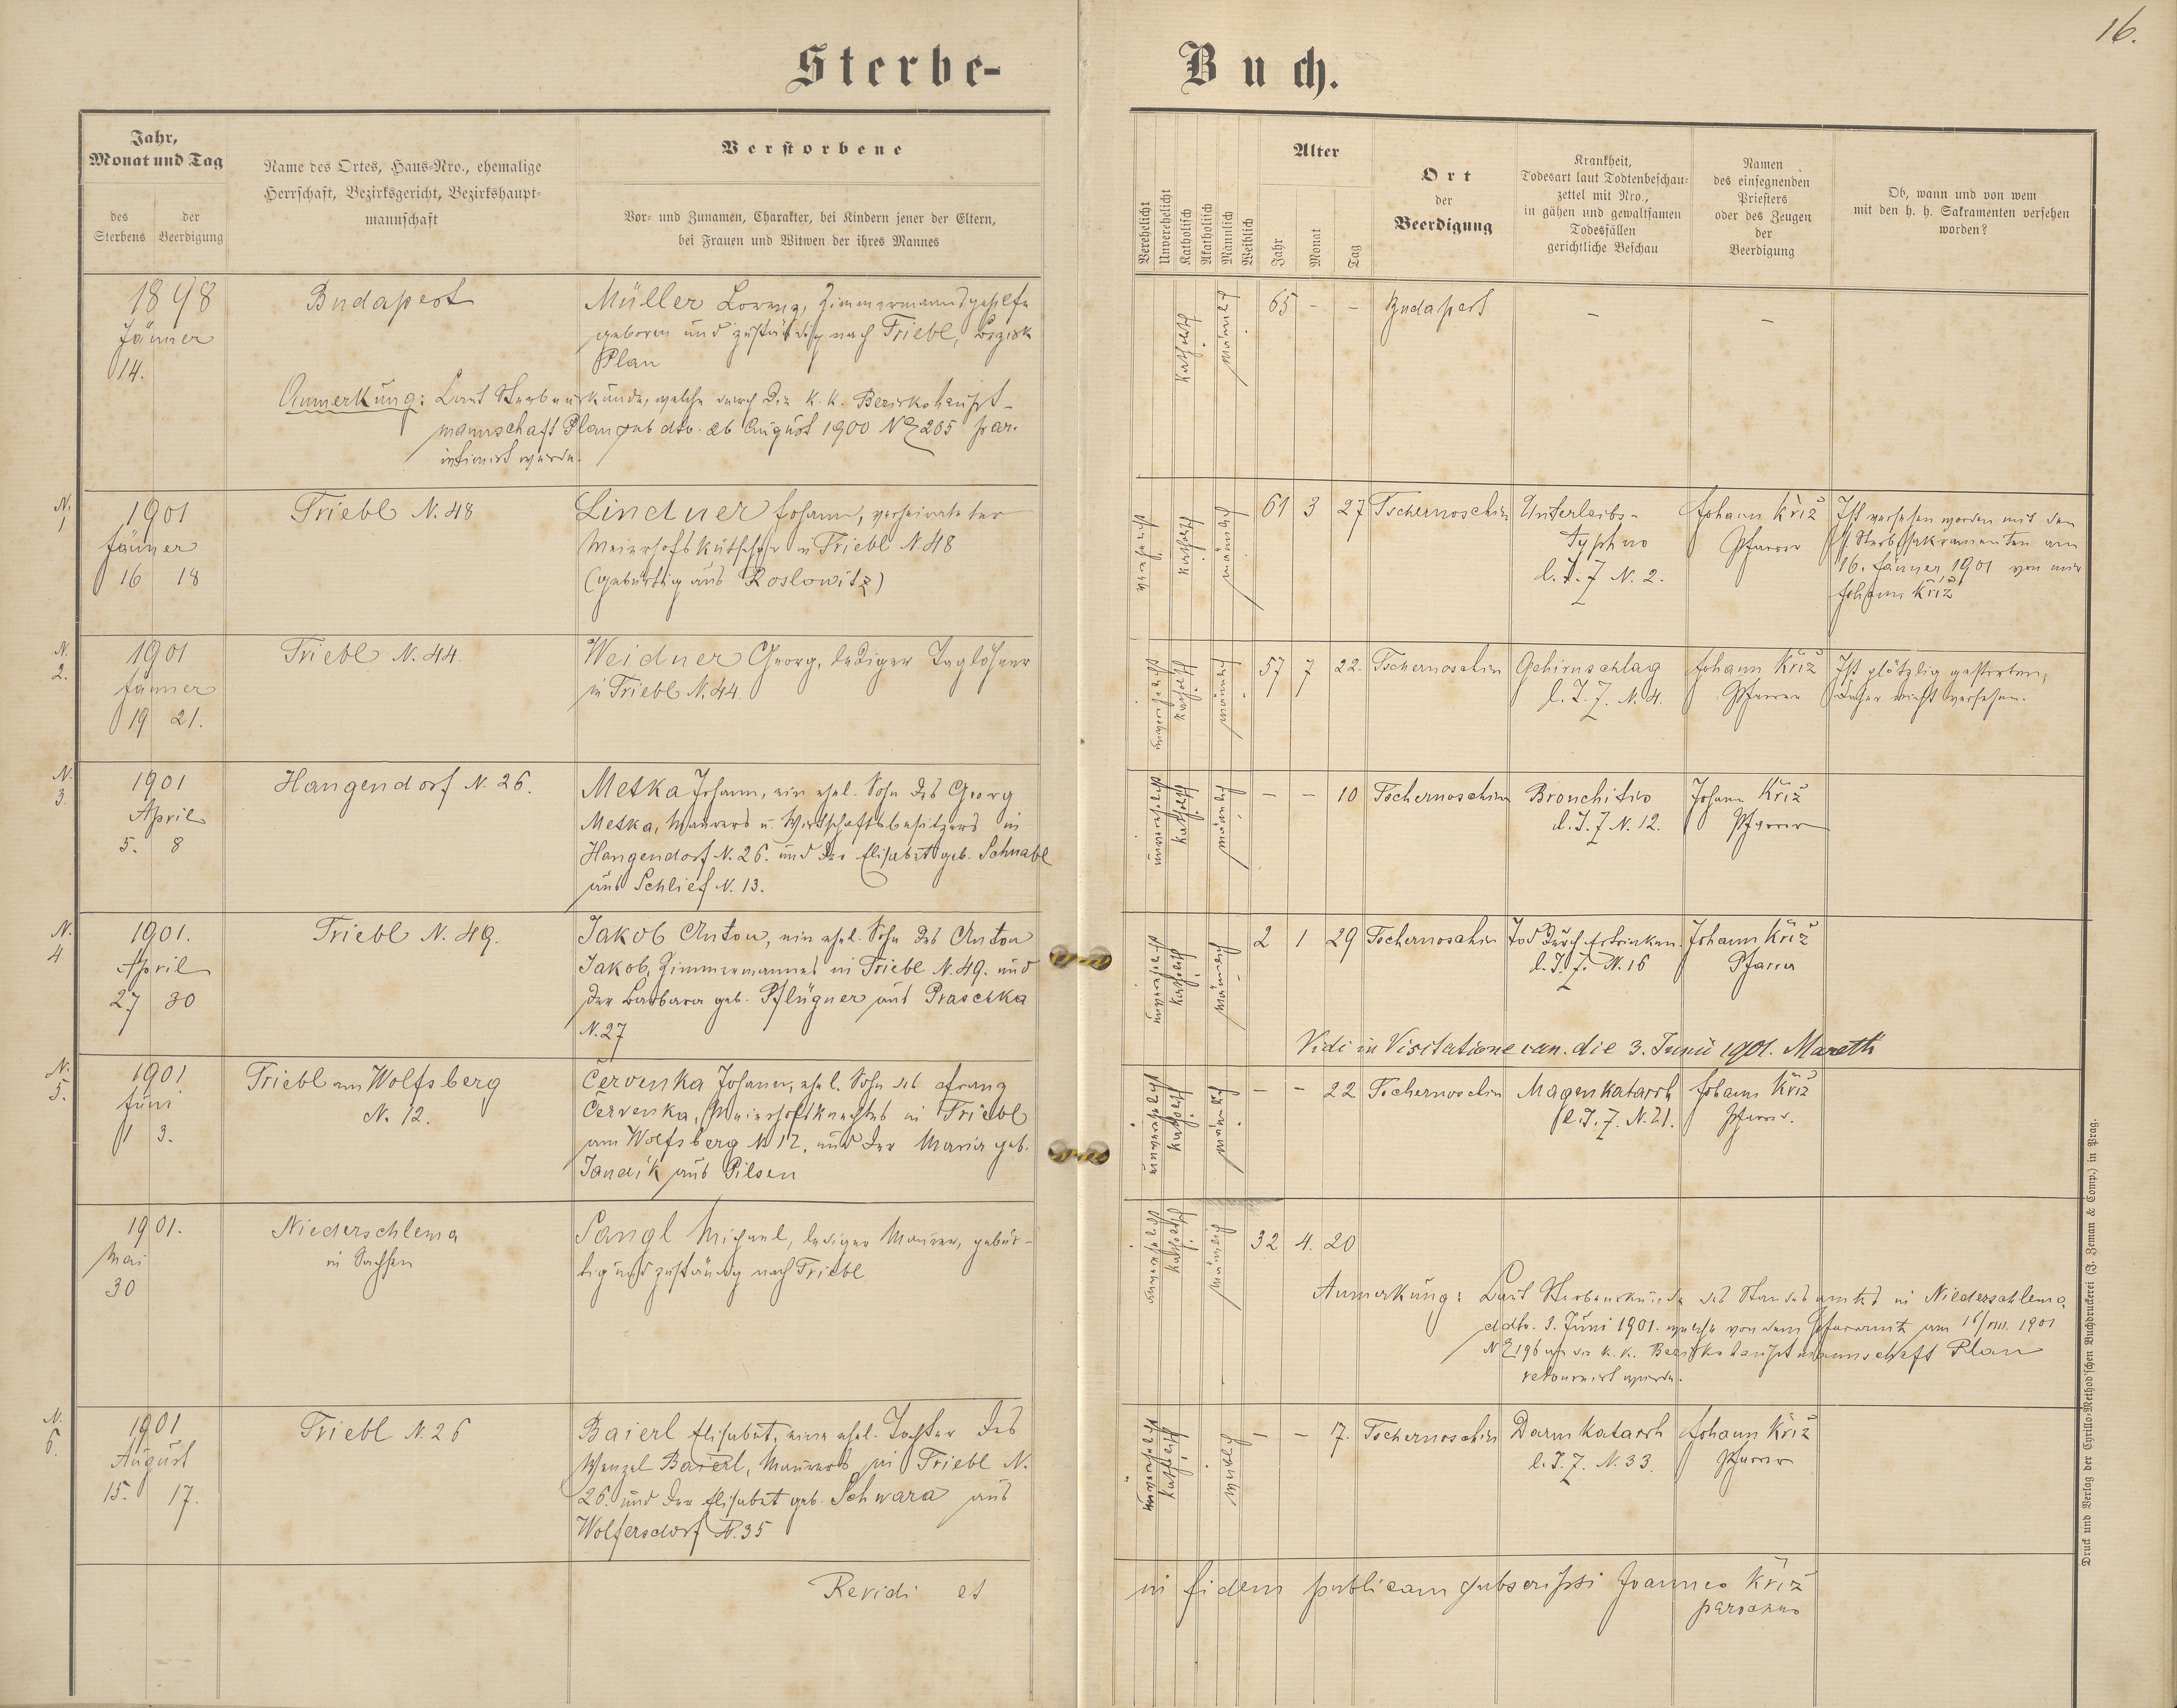 16.
Sterbe-Buch.
Jahr,
Monat und Tag
des
Sterbens
der
Beerdigung
Name des Ortes, Haus-Nro., ehemalige
Herrschaft, Bezirksgericht, Bezirkshaupt-
mannschaft
Verstorbene
Vor- und Zunamen, Charakter, bei Kindern jener der Eltern,
bei Frauen und Witwen der ihres Mannes
Verehelicht
Unverehelicht
Katholisch
Akatholisch
Männlich
Weiblich
Alter
Jahr
Monat
Tag
Ort
der
Beerdigung
Krankheit,
Todesart laut Todtenbeschau-
zettel mit Nro.,
in gähen und gewaltsamen
Todesfällen
gerichtliche Beschau
Namen
des einsegnenden
Priesters
oder des Zeugen
der
Beerdigung
Ob, wann und von wem
mit den h. h. Sakramenten versehen
worden?
1898
Jänner
14.
Budapest
Müller Lorenz, Zimmermannsgehilfe
geboren und zuständig nach Triebl, Bezirk
Plan
katholisch
männlich
65 - -
Budapest
-
-
Anmerkung: Laut Sterbeurkunde, welche durch die k. k. Bezirkshaupt-
mannschaft Plan sub dto. 26 August 1900 N 205 par.
intimirt wurde.
N.
1
1901
Jänner
16 18
Triebl N. 48
Lindner Johann, verheirateter
Meierhofskutscher in Triebl N 48
(gebürtig aus Roslowitz)
verehelicht
katholisch
männlich
61 3 27
Tschernoschin
Unterleibs-
Typhus
l. T. Z N. 2.
Johann Kříž
Pfarrer
Ist versehen worden mit den
h. Sterbsakramenten am
16. Jänner 1901 von mir
Johann Kříž
N.
2.
1901
Jänner
19 21.
Triebl N. 44.
Weidner Georg, lediger Taglöhner
in Triebl N. 44.
unverehelicht
katholisch
männlich
57 7 22.
Tschernoschin
Gehirnschlag
l. T. Z. N. 4.
Johann Kříž
Pfarrer
Ist plötzlig gestorben,
daher nicht versehen.
N.
3.
1901
April
5. 8
Hangendorf N. 26.
Metka Johann, ein ehel. Sohn des Georg
Metka, Maurers u. Wirtschaftsbesitzers in
Hangendorf N. 26. und der Elisabet geb. Schnabl
aus Schlief N. 13.
unverehelicht
katholisch
männlich
- - 10
Tschernoschin
Bronchitis
l. T. Z N. 12.
Johann Kříž
Pfarrer
N.
4
1901.
April
27 30
Triebl N. 49.
Jakob Anton, ein ehel. Sohn des Anton
Jakob, Zimmermannes in Triebl N. 49. und
der Barbara geb. Pflügner aus Praschka
N. 27
unverehelicht
katholisch
männlich
2 1 29
Tschernoschin
Tod durch Ertrinken.
l. T. Z. N. 16
Johann Kříž
Pfarrer
Vidi in Visitatione can. die 3. Junii 1901. Mareth
N.
5.
1901
Juni
1 3.
Triebl am Wolfsberg
N. 12.
Červenka Johann, ehel. Sohn des Franz
Červenka, Meierhofsknechtes in Triebl
am Wolfsberg N 12. und der Maria geb.
Jandik aus Pilsen
unverehelicht
katholisch
männlich
- - 22
Tschernoschin
Magenkatarrh
l. T. Z. N. 21.
Johann Kříž
Pfarrer.
1901.
Mai
30
Niederschlema
in Sachsen
Sangl Michael, lediger Maurer, gebür-
tig und zuständig nach Triebl
unverehelicht
katholisch
männlich
32 4. 20
Anmerkung: Laut Sterbeurkunde des Standesamtes in Niederschlema,
ddto. 3. Juni 1901. welche von dem Pfarramte am 16/VIII. 1901
N 196 an die k. k. Bezirkshauptmannschaft Plan
retournirt wurde.
N.
6.
1901
August
15. 17.
Triebl N. 26
Baierl Elisabet, eine ehel. Tochter des
Wenzel Baierl, Maurers in Triebl N.
26. und der Elisabet geb. Schwara aus
Wolfersdorf N. 35
unverehelicht
katholisch
weiblich
- - 17.
Tschernoschin
Darmkatarrh
l. T. Z. N. 33.
Johann Kříž
Pfarrer
Revidi et in fidem publicam subscripsi Joannes Kříž
parochus
Druck und Verlag der Cyrillo-Method'schen Buchdruckerei (J. Zeman & Comp.) in Prag.